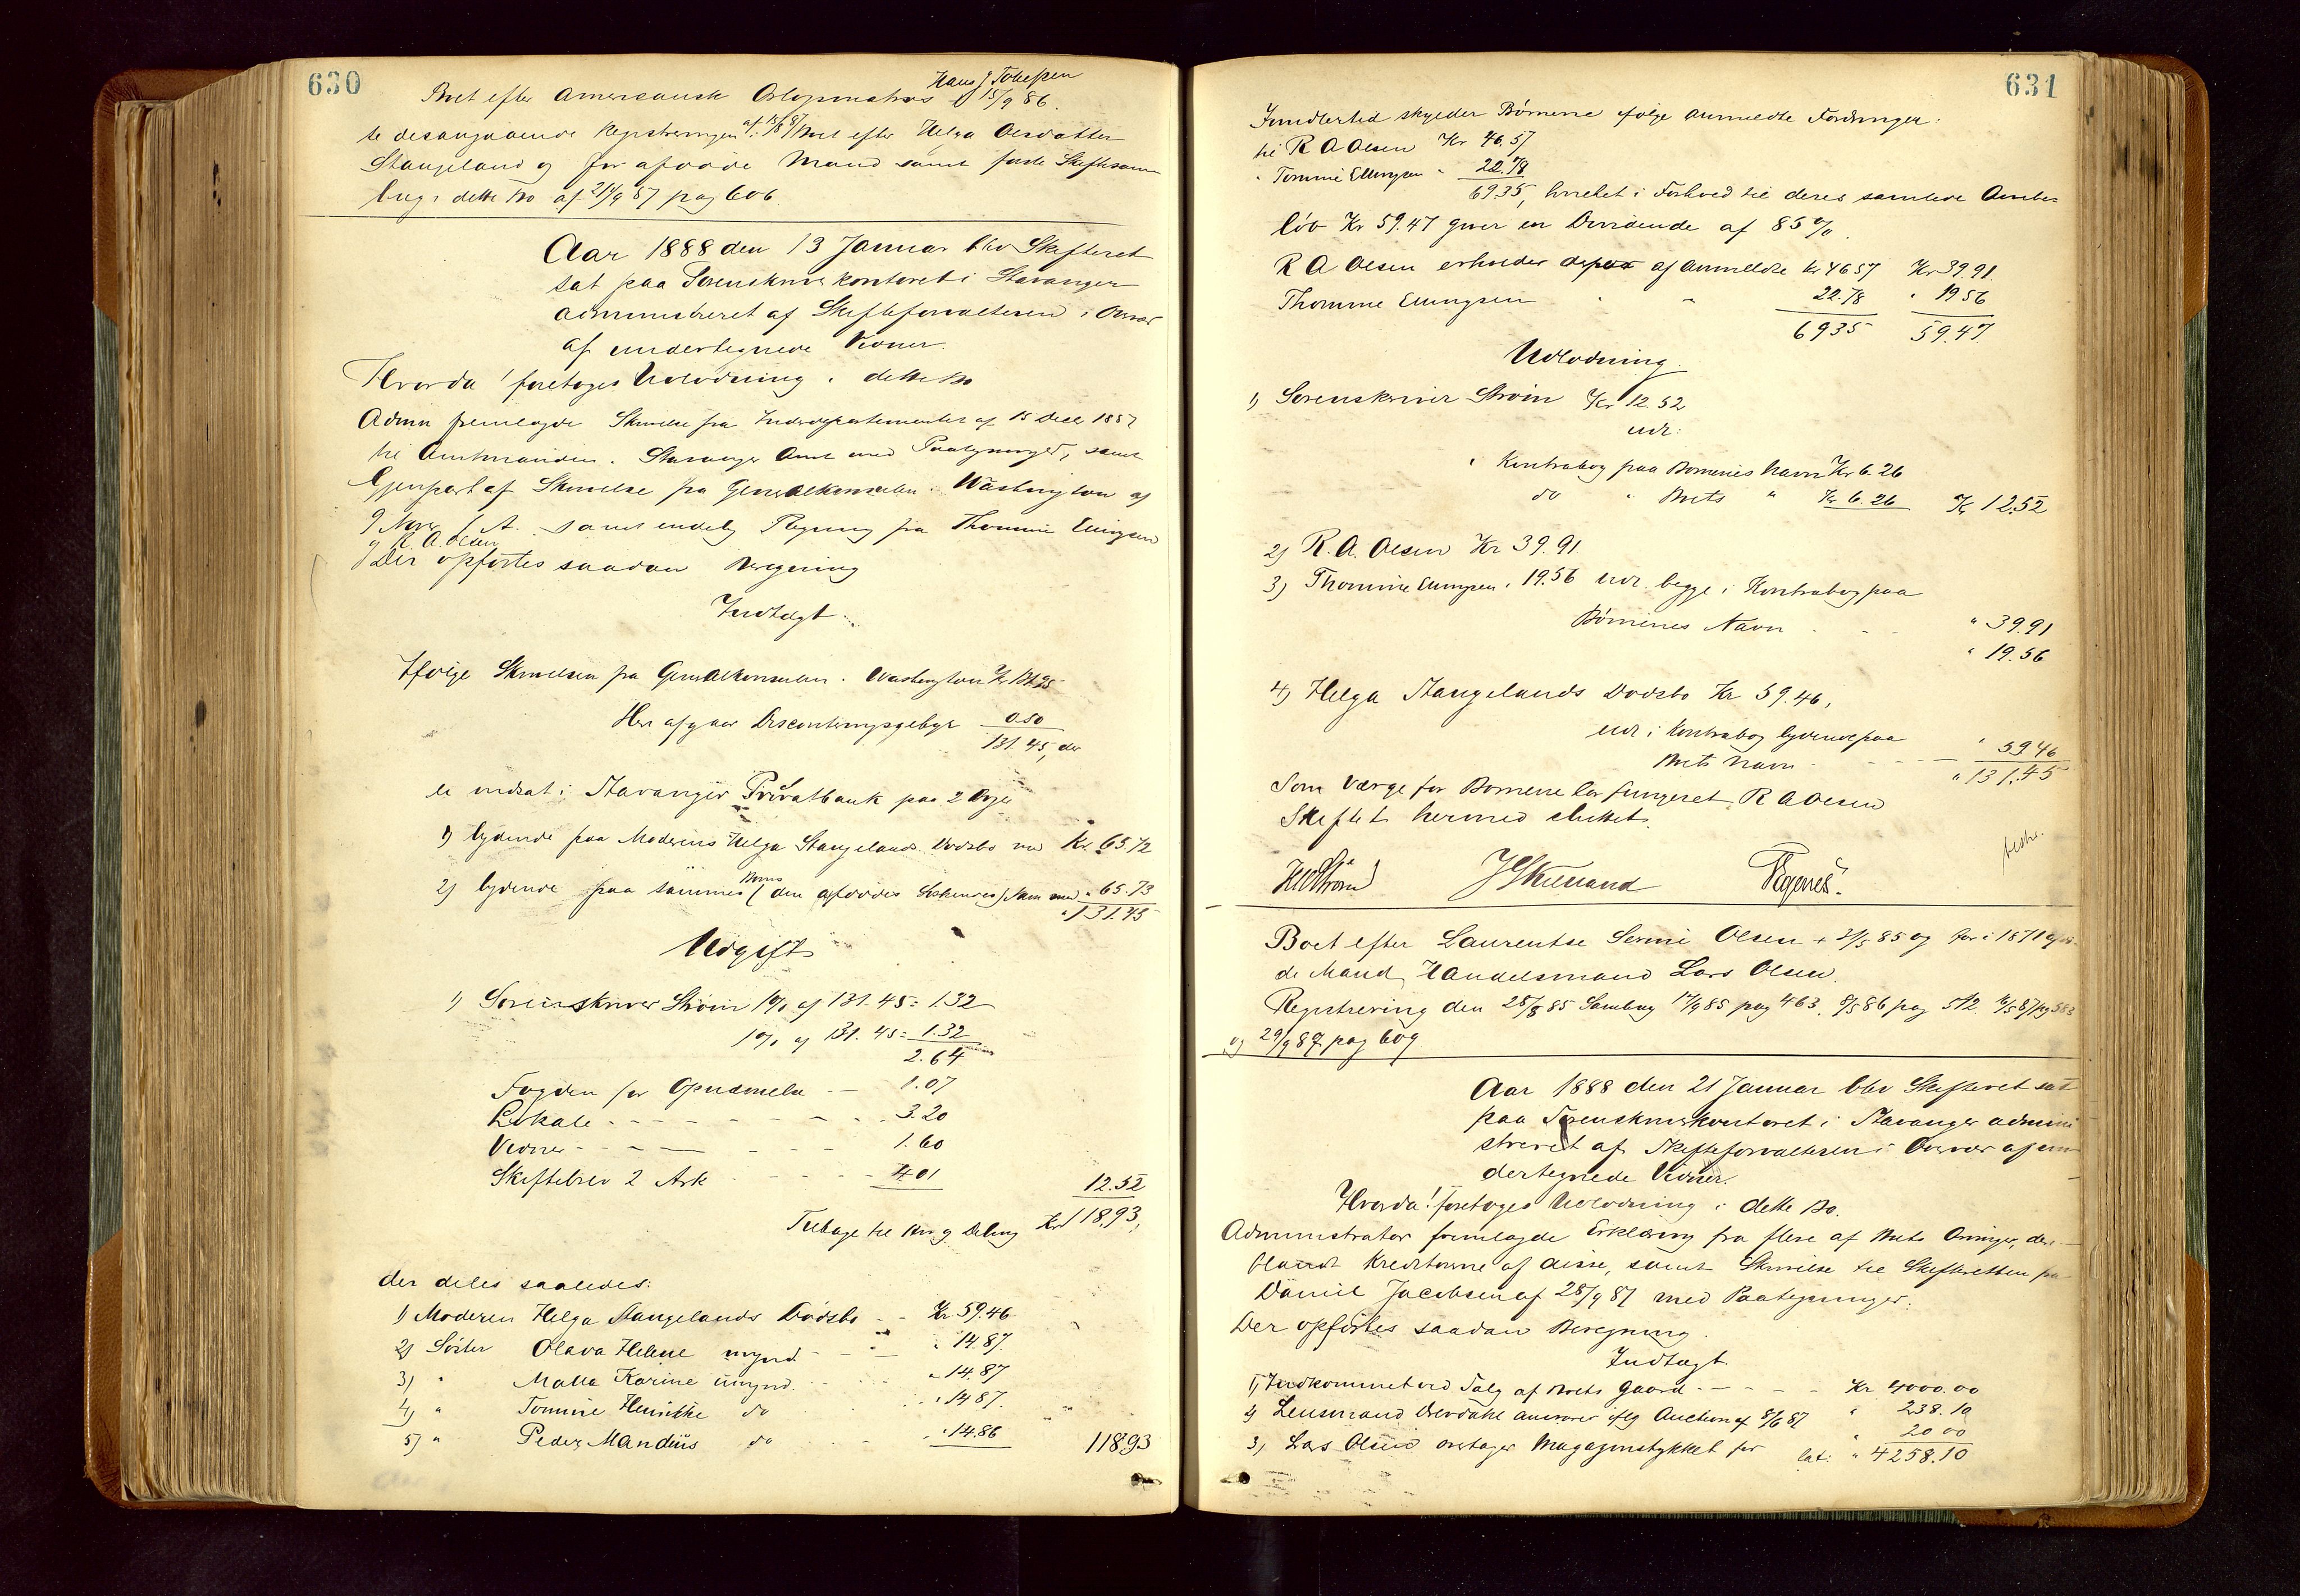 630
Hans J Tollefsen
Boet efter Amerikansk Orlogsmatros † 15/9 86.
se desangaaende Registreringen af 15/8 87 i Boet efter Helga Olsdatter
Stangeland og før afdøde Mand samt første Skiftesam
ling i dette Bo af 21/9 87 pag 606
Aar 1888 den 13 Januar blev Skifteret
sat paa Sorenskriverkontoret i Stavanger
administreret af Skifteforvalteren i Overvær
af undertegnede Vidner.
Hvorda! foretoges Udlodning i dette Bo
Admn fremlagde Skrivelse fra Indredepartementet af 15 Decb 1887
til Amtmanden i Stavanger Amt med Paategninger, samt
Gjenpart af Skrivelse fra Generalkonsulen i Washington af
9 Novr f. A. samt endelig Regning fra Thomine Ellingsen
og R. A. Olsen
Der opførtes saadan Beregning
Indtægt.
Ifølge Skrivelsen fra Generalkonsulen i Washington Kr 131.95
Her afgaar Disconteringsgebyr 0.50
131.45, der
er indsat i Stavanger Privatbank paa 2 Bøger
1) lydende paa Moderens Helga Stangelands Dødsbo med Kr. 65.72
2) lydende paa sammes Børns (den afdødes Søskendes) Navn med " 65.73
" 131.45
Udgift
1) Sorenskriver Strøm 1% af 131.45 = 1.32
1% af 131.45 = 1.32
2.64
Fogden for Opnævnelse – 1.07
Lokale - - - - - - 3.20
Vidner - - - - - - 1.60
Skiftebrev 2 Ark - - - - 4.01 12.52
Tilbage til Arv og Deling Kr 118.93,
der deles saaledes:
1) Moderen Helga Stangelands Dødsbo - - Kr. 59.46
2) Søster Olava Helene mynd. - - " 14.87.
3) " Malla Karine umynd. - - " 14.87
4) " Tomine Henrikke do - - " 14.87.
5) " Peder Mandius do - - " 14.86 118.93
631
Imidlertid skylder Børnene ifølge anmeldte Fordringer:
til R A Olsen Kr 46.57
" Tomine Ellingsen " 22.78
69.35, hvilket i Forhold til deres samlede Arvebe
løb Kr 59.47 giver en Dividende af 85%.
R A Olsen erholder af anmeldte Kr 46 57 Kr 39.91
Thomine Ellingsen " " 22.78 " 19 56
69 35 59.47
Udlodning.
1) Sorenskriver Strøm Kr 12.52
udl:
i Kontrabog paa Børnenes Navn Kr 6.26
do " Boets " Kr 6.26 Kr 12.52
2) R. A. Olsen Kr 39.91
3) Thomine Ellingsen " 19.56 udl. begge i Kontrabog paa
Børnenes Navn - - - " 39.91
" 19.56
4) Helga Stangelands Dødsbo Kr 59.46,
udl i Kontrabog lydende paa
Boets Navn - - - - " 59.46
" 131.45
Som Værge for Børnene har fungeret R A Olsen
Skiftet hermed sluttet.
Boet efter Laurentse Serine Olsen † 21/5 85 og før i 1871 afdø
de Mand, Handelsmand Lars Olsen.
Registrering den 28/8 85 Samling 17/9 85 pag 463. 8/5 86 pag 512. 6/5 87 pag 583
og 29/9 87 pag 609
Aar 1888 den 21 Januar blev Skifteret sat
paa Sorenskriverkontoret i Stavanger admini
streret af Skifteforvalteren i Overvær af un
dertegnede Vidner.
Hvorda! foretoges Udlodning i dette Bo.
Administrator fremlagde Erklæring fra flere af Boets Arvinger, der
iblandt Kreditorerne af disse, samt Skrivelse til Skifteretten fra
Daniel Jacobsen af 28/9 87 med Paategninger.
Der opførtes saadan Beregning.
Indtægt.
1) Indkommet ved Salg af Boets Gaard - - - - Kr 4000.00
2) Lensmand ansvarer iflg Auction af 8/6 87 " 238.10
3) Lars Olsen overtager Magazinstykket for " 20 00
lat: " 4258.10